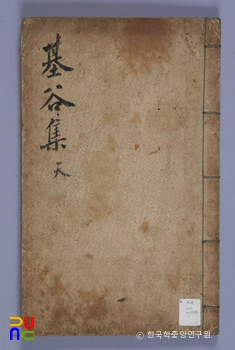 基谷集 天
© 한국학중앙연구원